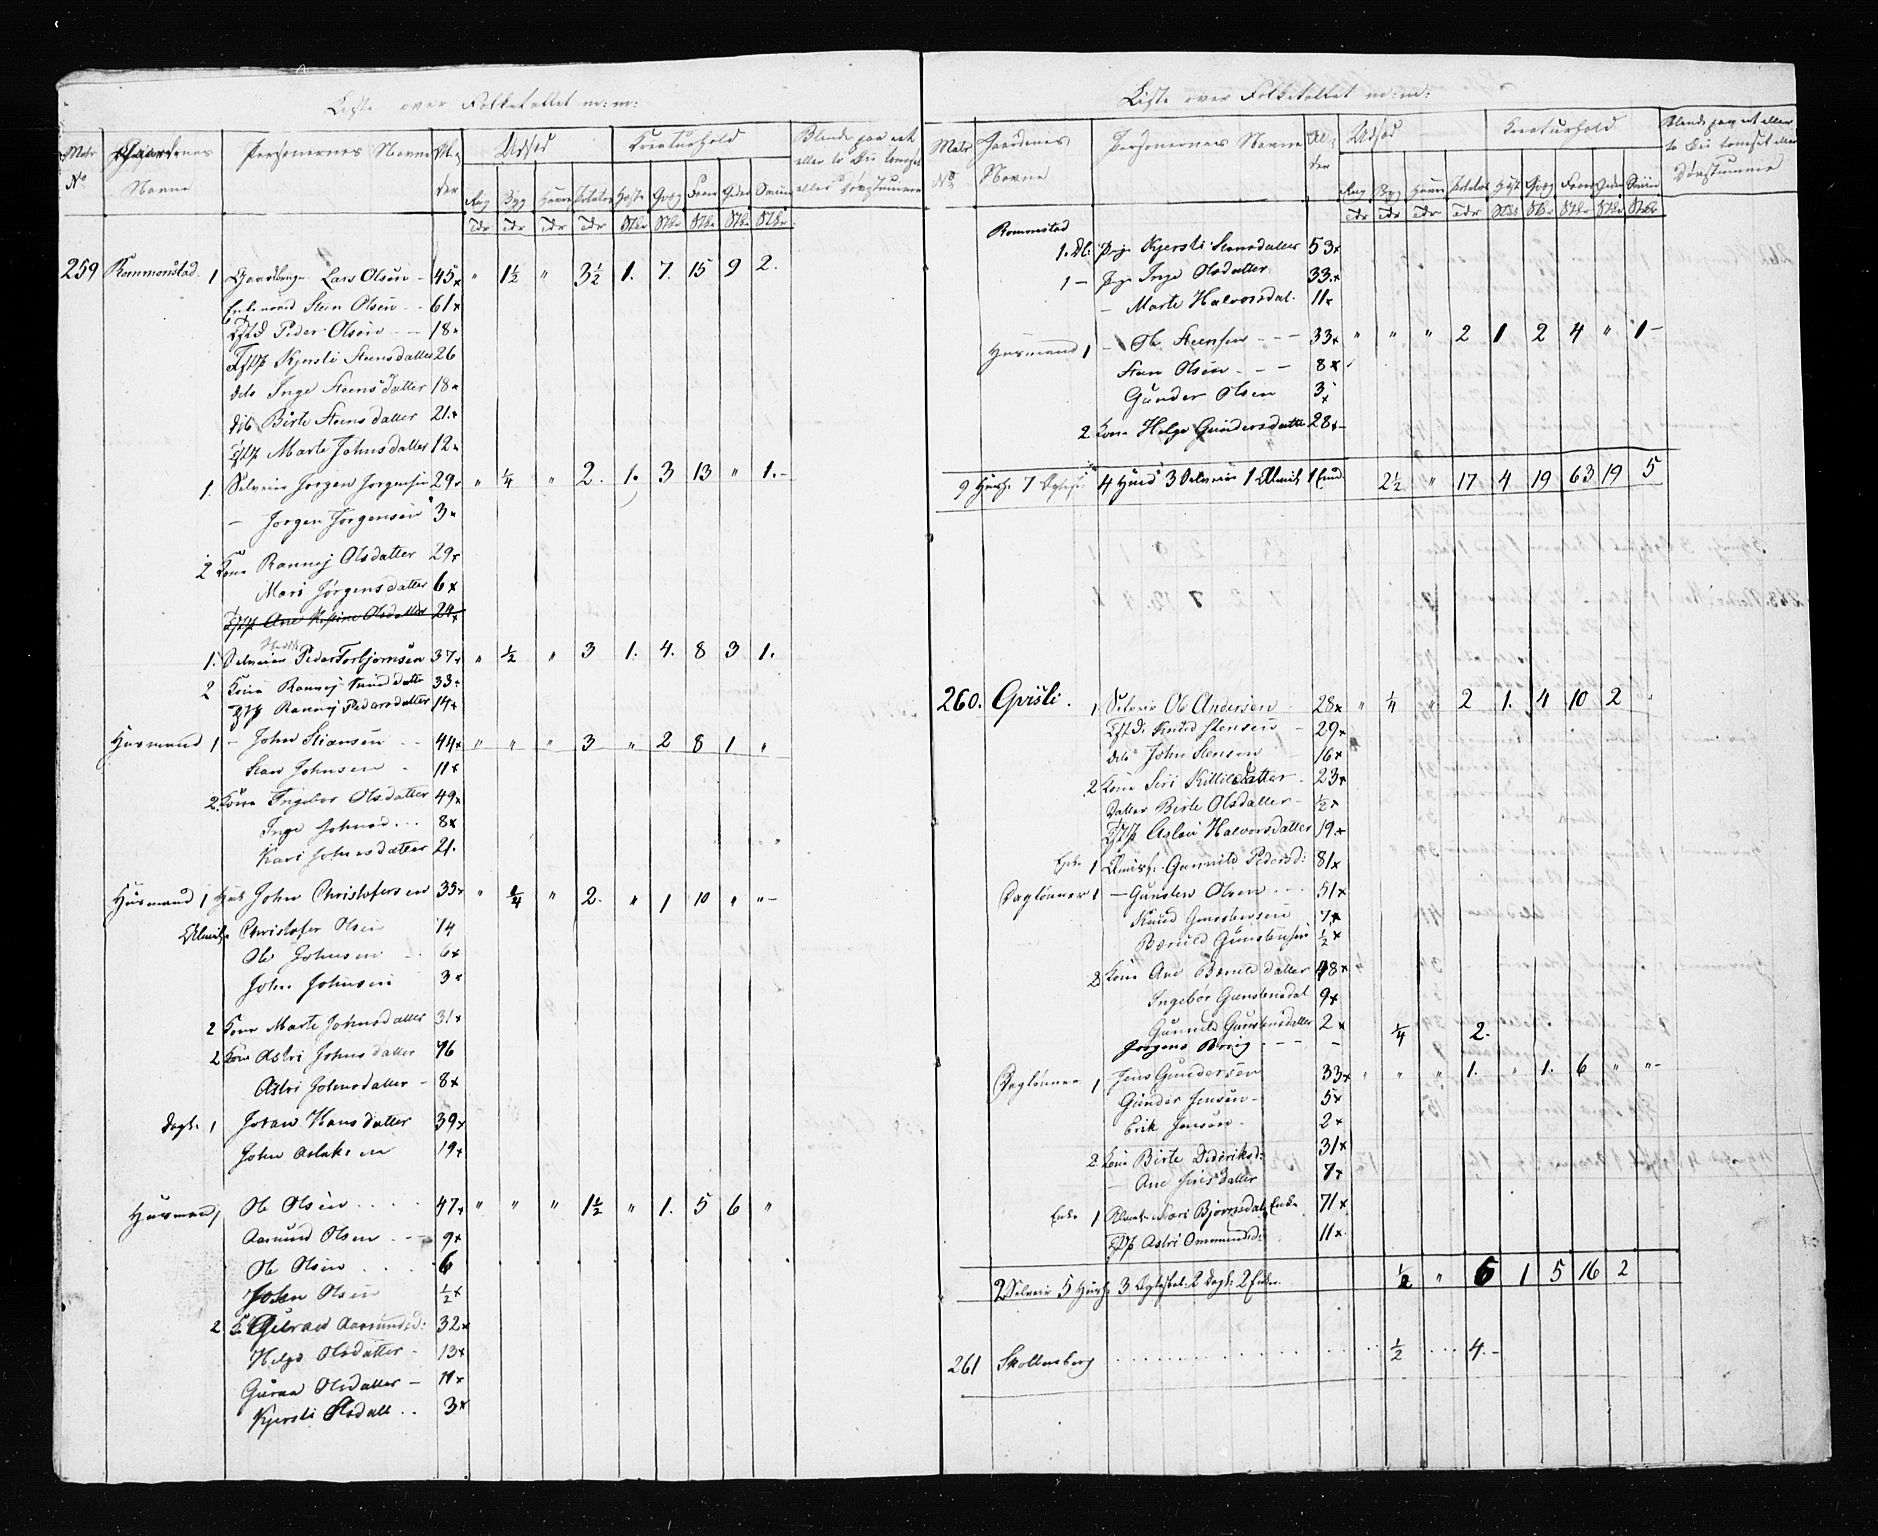 Liste over Folketallet m: m:
Matr No Gaardenes Navne Personernes Navne Alder Udsæd Kreaturhold Blinde paa eet eller to
Rug Byg Havre Potatos Heste Qvæg Faar Geder Sviin
Tdr Tdr Tdr Tdr Stkr Stkr Stkr Stkr Stkr
259 Rommenstad. 1 Lars Olsen 45x " 1½ " 3½ 1. 7. 15 9 2.
Enkemand Sten Olsen 61x
Peder Olsen 18x
Tjp Kjersti Steensdatter 26
dito Inge Steensdatter 18x
dito Birte Steensdatter 21x
Tjp Marte Johnsdatter 12x
1. Selveier Jorgen Jorgensen 29x " ¼ " 2. 1. 3 13 " 1.-
- Jorgen Jorgensen 3x
2 Kone Rannej Olsdatter 29x
Mari Jorgensdatter 6x
Tjp Ane Kistine Olsdatter 24x
1. Selveier Peder Torbjornsen 37x " ½ " 3 1. 4. 8 3 1.
2 Kone Rannej Knudsdatter 33x
Rannej Pedersdatter 14x
Husmand 1 - John Stiansen 44x " " " 3 " 2 8 1 "
Stian Johnsen 11x
2 Kone Ingebor Olsdatter 49x
Inge Johnsd 8x
Kari Johnsdatter 21.
Husmand 1 John Christofersen 35x " ¼ " 2. " 1 10 " "-
Christofer Olsen 74
Ole Johnsen 6x
John Johnsen 3x
2 Kone Marte Johnsdatter 31x
2 Kone Astri Johnsdatter 76
Astri Johnsdatter - 8x
Dagl. 1 Joran Hansdatter 39x
John Aslaksen 19x
Husmand 1 Ole Olsen 47x " " " 1½ " 1. 5 6 "
Aasmund Olsen 9x
Ole Olsen 6
John Olsen ½x
2 K. Guroe Aasmundsd: 32x
Helge Olsdatter 13x
Guroe Olsdatter - 11x
Kjersti Olsdatt 3x
Liste over Folketallet m: m:
Matr No Gaardenes Navne Personernes Navne Alder Udsæd Kreaturhold Blinde paa et eller to
Rug Byg Havre Potatos Hest Qvæg Faar Geder Sviin
Tdr Tdr Tdr Tdr Stkr Stkr Stkr Stkr Stkr
Rommestad
Kjersti Steensdatter 53x
1 - Inge Olsdatter 33x
- Marte Halvorsdat. 11x
Husmand 1 - Ole Steensen 33x " " " 2 1 2 4 " 1-
Sten Olsen 8x
Gunder Olsen 3x
2 Kone Helge Gundersdatter 28x
9 Hush. 4 Husd 3 Selveier 2½ " 17 4 19 63 19 5
260. Gvisli. 1 Selveier Ole Andersen 28x " ¼ " 2 1. 4 10 2
Knud Stensen 29x
dito John Stensen 16x
2 Kone Siri Kittilsdatter 23x
Datter Birte Olsdatter ½x
Tjp Aslou Halvorsdatter 19x
Enke 1 Gunnild Pedersd: 81x
Daglønner 1 - Gunsten Olsen 51x
Knud Gunstensen 7x
Gunstensen ½x
2 Kone Ane 48x
Ingebor Gunstensdat 9x
Gunnild Gunstensdatter 2x
Jorgens Brug - ¼ 2.
Daglønner 1 Jens Gundersen 33x " " " 1. " 1. 6 " "-
Gunder Jensen 5x
Erik Jensen 2x
2 Kone Birte Dideriksd: 31x
- Ane Jensdatter 7x
Enke 1 Mari Bjornsdat. Enke 71x
Tjp Astri Ommundsd: 11x
2 Selveier 5 Hush. 3 2 Dagl: 2 Enker ½ " 6 1 5 16 2
261 Skollenborg ½ 4.-